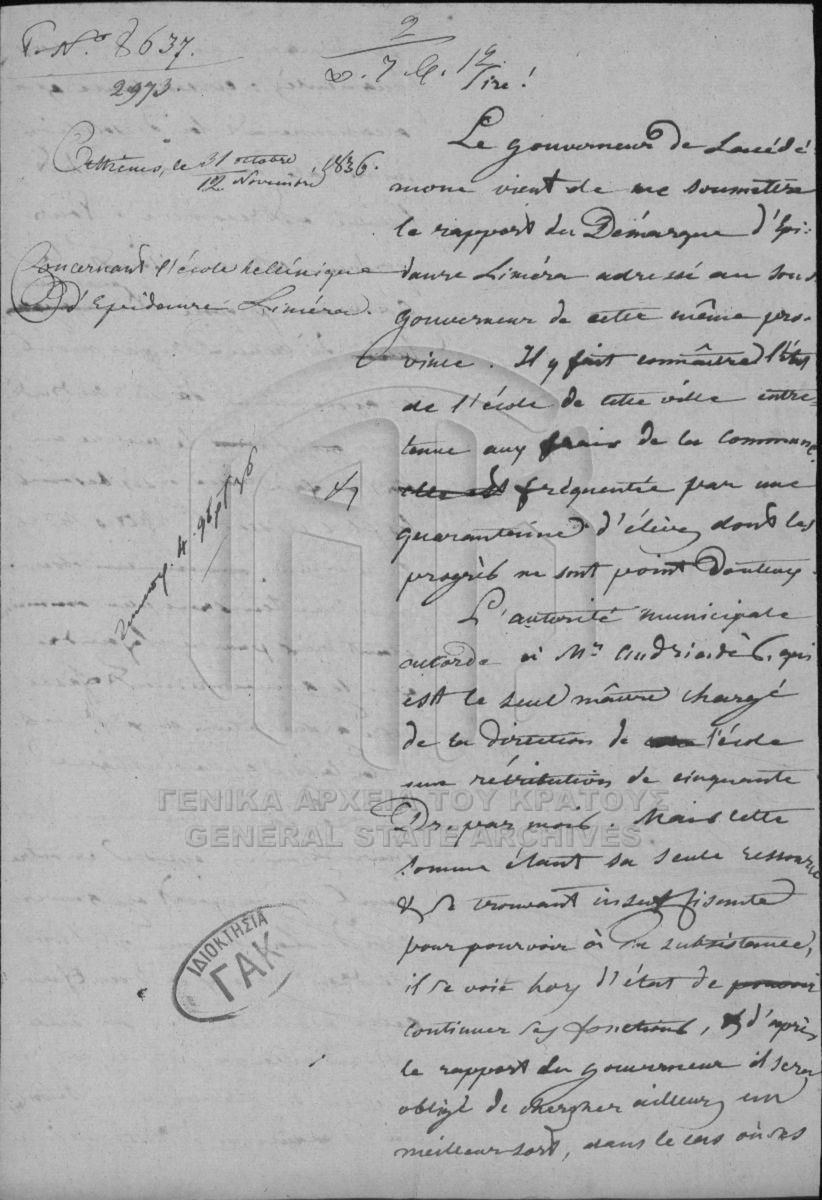 P. Nº 8637.
2973.
2
Athènes, le 31 octobre / 12 Novembre 1836.
Concernant l'école hellénique
d'Epidaure Liméra.
Sire!
Le gouverneur de Lacédé-
mone vient de me soumettre
le rapport du Démarque d'Epi-
daure Liméra adressé au sous
gouverneur de cette même pro-
vince. Il y fait connaître l'état
de l'école de cette ville entre-
tenue aux frais de la commune
elle est fréquentée par une
quarantaine d'élèves dont les
progrès ne sont point douteux.
L'autorité municipale
accorde à Mr Andriadès, qui
est le seul maître chargé
de la direction de l'école
une rétribution de cinquante
Dr. par mois. Mais cette
somme étant sa seule ressource
& se trouvant insuffisante
pour pourvoir à sa subsistance,
il se voit hors d'état de pouvoir
continuer ses fonctions, & d'après
le rapport du gouverneur il sera
obligé de chercher ailleurs un
meilleur sort, dans le cas où on
ΓΕΝΙΚΑ ΑΡΧΕΙΑ ΤΟΥ ΚΡΑΤΟΥΣ
GENERAL STATE ARCHIVES
ΙΔΙΟΚΤΗΣΙΑ
ΓΑΚ